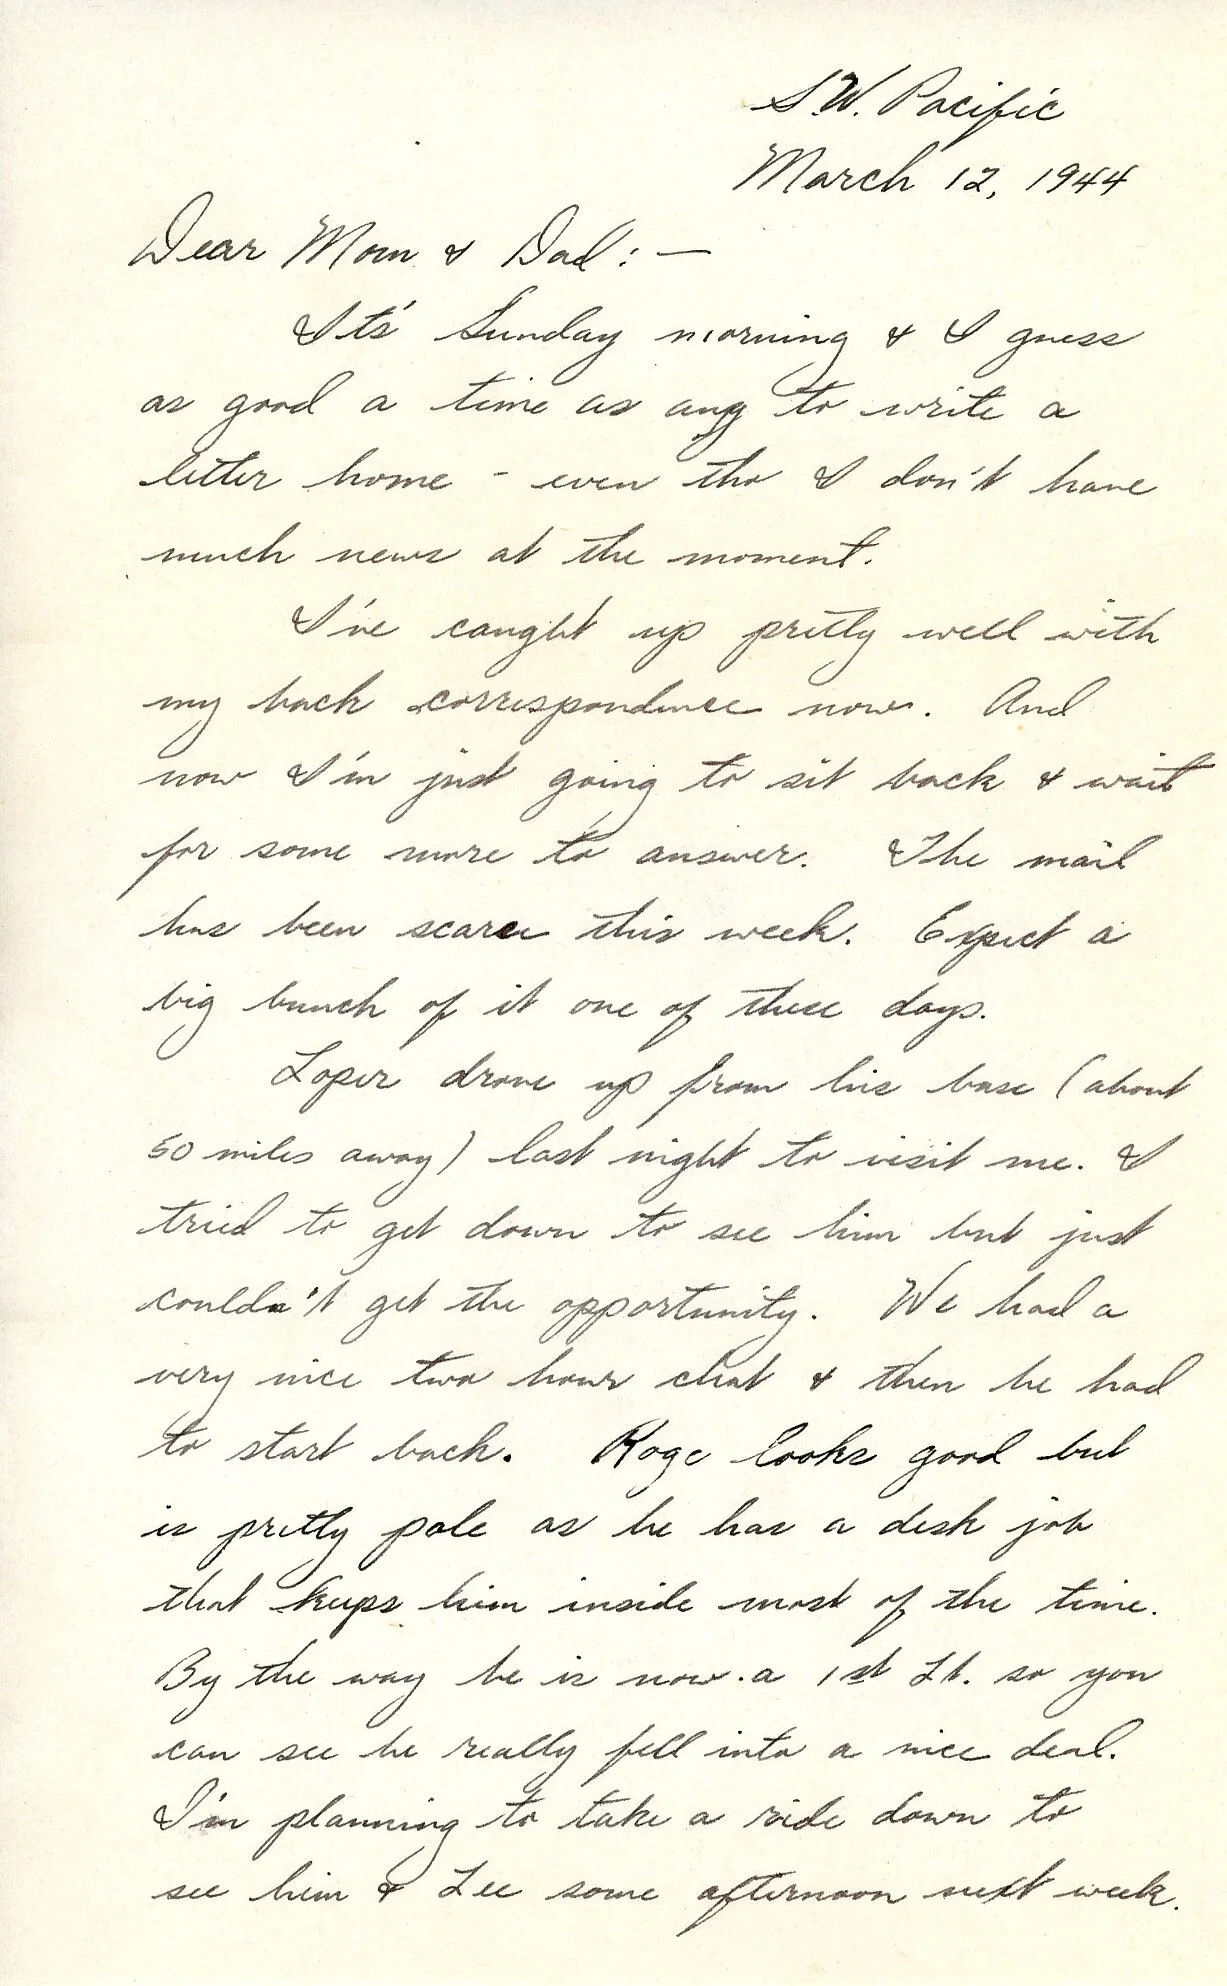 S.W. Pacific
March 12, 1944
Dear Mom & Dad: —
It's Sunday morning & I guess
as good a time as any to write a
letter home - even tho I don't have
much news at the moment.
I've caught up pretty well with
my back correspondence now. And
now I'm just going to sit back & wait
for some more to answer. The mail
has been scarce this week. Expect a
big bunch of it one of these days.
Loper drove up from his base (about
50 miles away) last night to visit me. I
tried to get down to see him but just
couldn't get the opportunity. We had a
very nice two hour chat & then he had
to start back. Roge looks good but
is pretty pale as he has a desk job
that keeps him inside most of the time.
By the way he is now a 1st Lt. so you
can see he really fell into a nice deal.
I'm planning to take a ride down to
see him & Lee some afternoon next week.